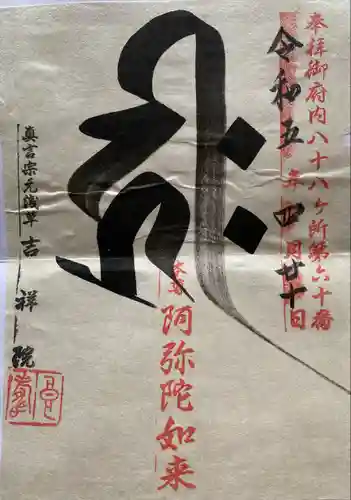 奉拝御府内八十八ヶ所第六十番
令和五年四月廿十日
ह्रीः
本尊
阿弥陀如来
真言宗元浅草
吉祥院